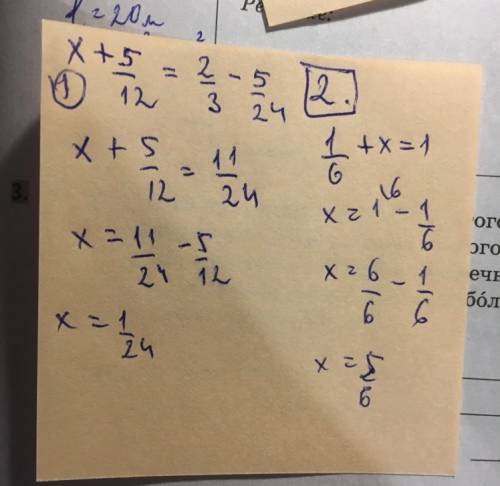 l = 20 м
Ре
① x + 5/12 = 2/3 - 5/24
x + 5/12 = 11/24
x = 11/24 - 5/12
x = 1/24
2.
1/6 + x = 1
x = 1\6 - 1/6
x = 6/6 - 1/6
x = 5/6
3.
ого
ого
ечн
бо́л